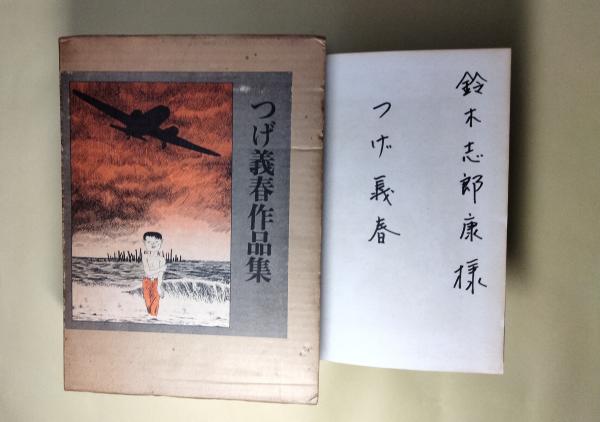 つげ義春作品集
鈴木志郎康様
つげ義春